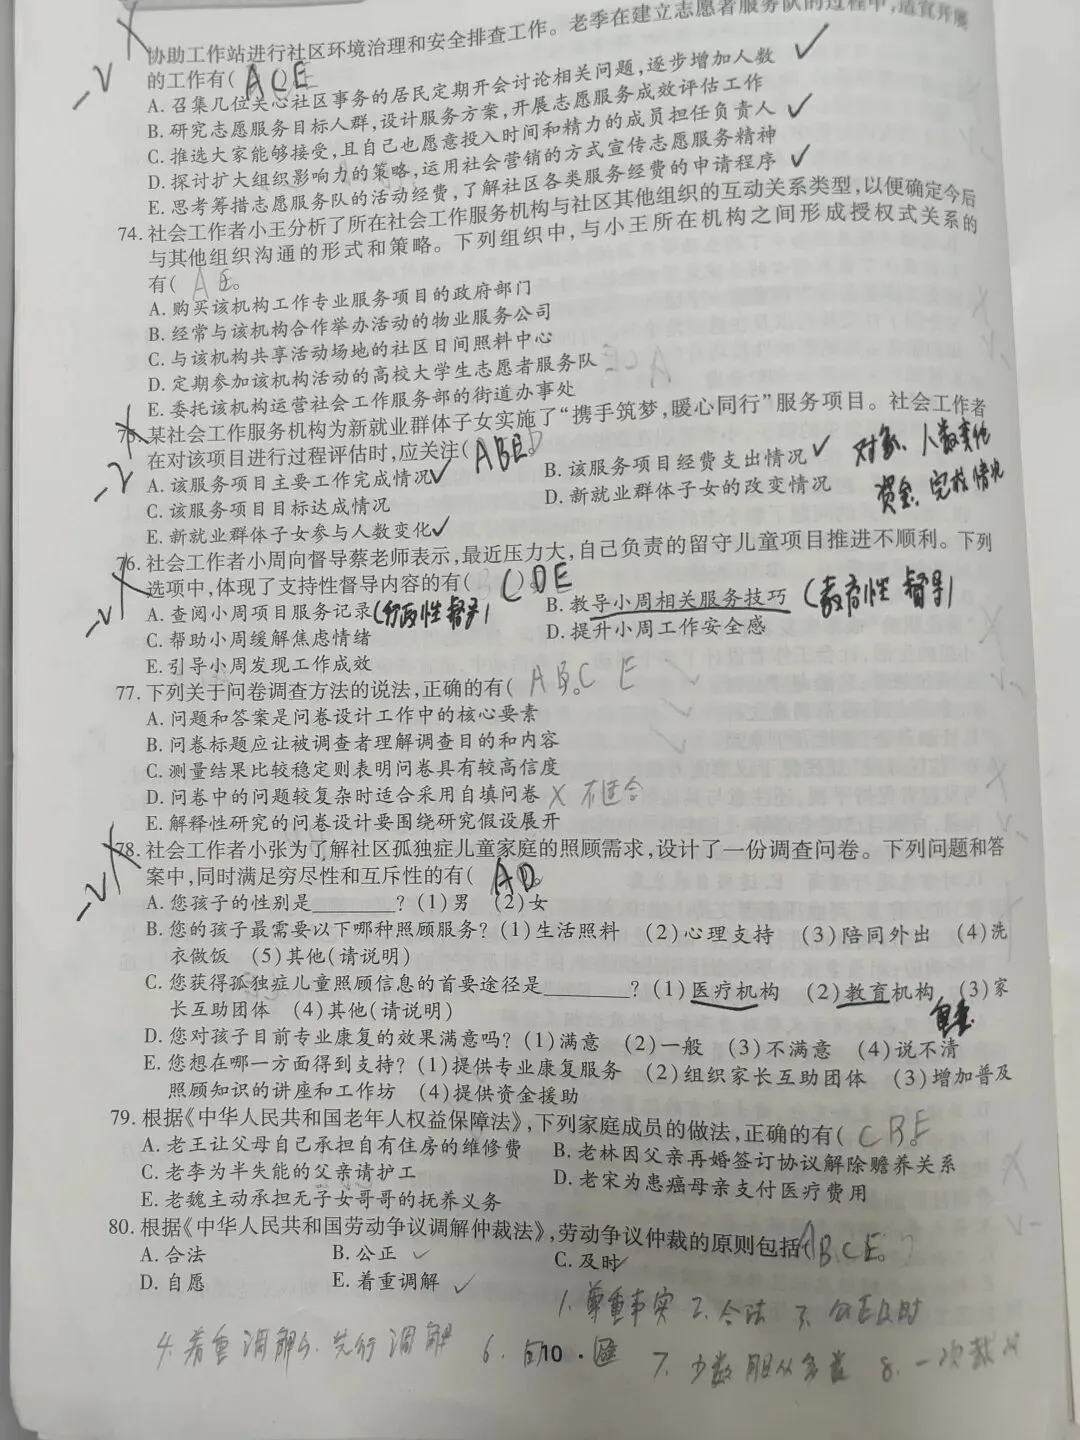 协助工作站进行社区环境治理和安全排查工作。老季在建立志愿者服务队的过程中,适宜开展
的工作有( ACE )
A. 召集几位关心社区事务的居民定期开会讨论相关问题,逐步增加人数 ✓
B. 研究志愿服务目标人群,设计服务方案,开展志愿服务成效评估工作
C. 推选大家能够接受,且自己也愿意投入时间和精力的成员担任负责人 ✓
D. 探讨扩大组织影响力的策略,运用社会营销的方式宣传志愿服务精神
E. 思考筹措志愿服务队的活动经费,了解社区各类服务经费的申请程序 ✓
-2
74. 社会工作者小王分析了所在社会工作服务机构与社区其他组织的互动关系类型,以便确定今后
与其他组织沟通的形式和策略。下列组织中,与小王所在机构之间形成授权式关系的
有( AE 。
A. 购买该机构工作专业服务项目的政府部门
B. 经常与该机构合作举办活动的物业服务公司
C. 与该机构共享活动场地的社区日间照料中心
D. 定期参加该机构活动的高校大学生志愿者服务队
E. 委托该机构运营社会工作服务部的街道办事处
ACE
75. 某社会工作服务机构为新就业群体子女实施了“携手筑梦,暖心同行”服务项目。社会工作者
在对该项目进行过程评估时,应关注( ABE 。
A. 该服务项目主要工作完成情况 ✓ B. 该服务项目经费支出情况 ✓
C. 该服务项目目标达成情况 D. 新就业群体子女的改变情况
E. 新就业群体子女参与人数变化 ✓
对象、人数变化
资金、完成情况
-2
76. 社会工作者小周向督导蔡老师表示,最近压力大,自己负责的留守儿童项目推进不顺利。下列
选项中,体现了支持性督导内容的有( CDE
A. 查阅小周项目服务记录 (行政性督导) B. 教导小周相关服务技巧 (教育性督导)
C. 帮助小周缓解焦虑情绪 D. 提升小周工作安全感
E. 引导小周发现工作成效
-2
77. 下列关于问卷调查方法的说法,正确的有( ABCE
A. 问题和答案是问卷设计工作中的核心要素
B. 问卷标题应让被调查者理解调查目的和内容
C. 测量结果比较稳定则表明问卷具有较高信度
D. 问卷中的问题较复杂时适合采用自填问卷 × 不适合
E. 解释性研究的问卷设计要围绕研究假设展开
78. 社会工作者小张为了解社区孤独症儿童家庭的照顾需求,设计了一份调查问卷。下列问题和答
案中,同时满足穷尽性和互斥性的有( AD。
A. 您孩子的性别是________? (1)男 (2)女
B. 您的孩子最需要以下哪种照顾服务? (1)生活照料 (2)心理支持 (3)陪同外出 (4)洗
衣做饭 (5)其他(请说明)
C. 您获得孤独症儿童照顾信息的首要途径是________? (1)医疗机构 (2)教育机构 (3)家
长互助团体 (4)其他(请说明)
D. 您对孩子目前专业康复的效果满意吗? (1)满意 (2)一般 (3)不满意 (4)说不清
E. 您想在哪一方面得到支持? (1)提供专业康复服务 (2)组织家长互助团体 (3)增加普及
照顾知识的讲座和工作坊 (4)提供资金援助
-2
79. 根据《中华人民共和国老年人权益保障法》,下列家庭成员的做法,正确的有( CBE
A. 老王让父母自己承担自有住房的维修费 B. 老林因父亲再婚签订协议解除赡养关系
C. 老李为半失能的父亲请护工 D. 老宋为患癌母亲支付医疗费用
E. 老魏主动承担无子女哥哥的抚养义务
80. 根据《中华人民共和国劳动争议调解仲裁法》,劳动争议仲裁的原则包括( ABCE。
A. 合法 B. 公正 ✓ C. 及时 ✓
D. 自愿 E. 着重调解 ✓
1、尊重事实 2、合法 3、公正及时
4、着重调解 5、先行调解 6、
· 10 ·
7、少数服从多数 8、一次裁